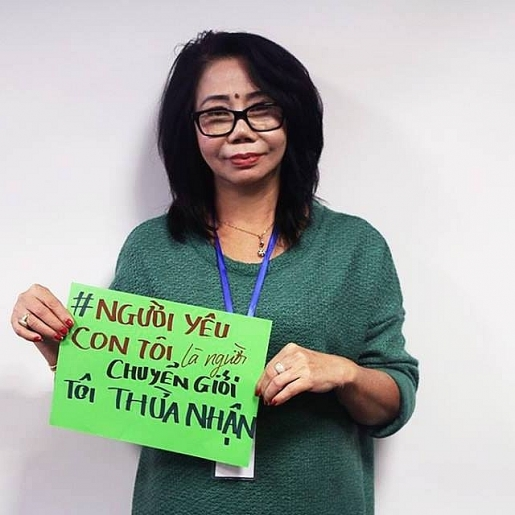 #NGƯỜI YÊU
CON TÔI là người
CHUYỂN GIỚI
TÔI THỪA NHẬN